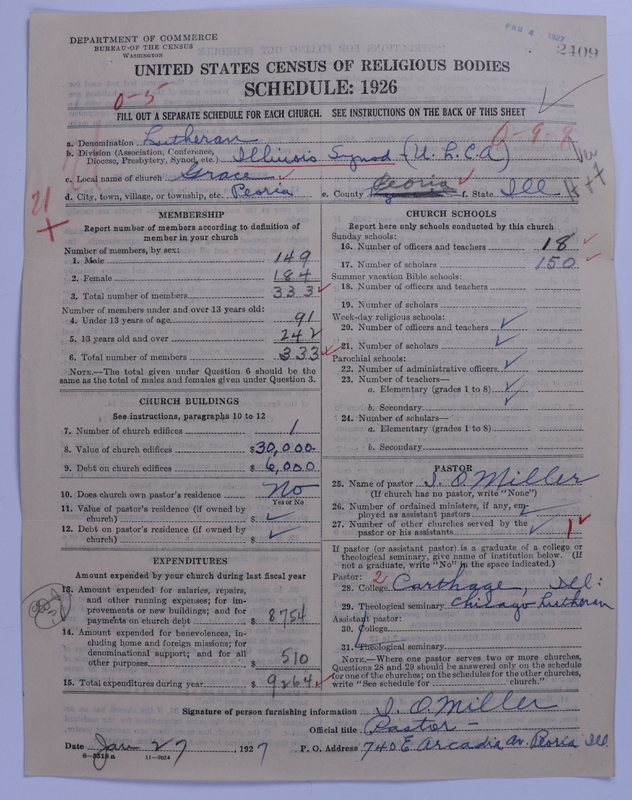 DEPARTMENT OF COMMERCE
BUREAU OF THE CENSUS
WASHINGTON
FEB 4 1927
2409
UNITED STATES CENSUS OF RELIGIOUS BODIES
SCHEDULE: 1926
0-5
FILL OUT A SEPARATE SCHEDULE FOR EACH CHURCH. SEE INSTRUCTIONS ON THE BACK OF THIS SHEET
a. Denomination Lutheran
b. Division (Association, Conference, Diocese, Presbytery, Synod, etc.) Illinois Synod (U. L. C. A)
c. Local name of church Grace
d. City, town, village, or township, etc. Peoria e. County Peoria f. State Ill
21
MEMBERSHIP
Report number of members according to definition of
member in your church
Number of members, by sex:
1. Male 149
2. Female 184
3. Total number of members 333
Number of members under and over 13 years old:
4. Under 13 years of age 91
5. 13 years old and over 242
6. Total number of members 333
NOTE.—The total given under Question 6 should be the
same as the total of males and females given under Question 3.
CHURCH BUILDINGS
See instructions, paragraphs 10 to 12
7. Number of church edifices 1
8. Value of church edifices $30,000
9. Debt on church edifices $ 6,000
10. Does church own pastor's residence No
Yes or No
11. Value of pastor's residence (if owned by
church) $
12. Debt on pastor's residence (if owned by
church) $
EXPENDITURES
Amount expended by your church during last fiscal year
13. Amount expended for salaries, repairs,
and other running expenses; for im-
provements or new buildings; and for
payments on church debt $ 8754
14. Amount expended for benevolences, in-
cluding home and foreign missions; for
denominational support; and for all
other purposes $ 510
15. Total expenditures during year $ 9264
CHURCH SCHOOLS
Report here only schools conducted by this church
Sunday schools:
16. Number of officers and teachers 18
17. Number of scholars 150
Summer vacation Bible schools:
18. Number of officers and teachers
19. Number of scholars
Week-day religious schools:
20. Number of officers and teachers
21. Number of scholars
Parochial schools:
22. Number of administrative officers
23. Number of teachers—
a. Elementary (grades 1 to 8)
b. Secondary
24. Number of scholars—
a. Elementary (grades 1 to 8)
b. Secondary
PASTOR
25. Name of pastor I. O. Miller
(If church has no pastor, write "None")
26. Number of ordained ministers, if any, em-
ployed as assistant pastors
27. Number of other churches served by the
pastor or his assistants 1
If pastor (or assistant pastor) is a graduate of a college or
theological seminary, give name of institution below. (If
not a graduate, write "No" in the space indicated.)
Pastor: 2
28. College Carthage, Ill:
29. Theological seminary Chicago Lutheran
Assistant pastor:
30. College
31. Theological seminary
NOTE.—Where one pastor serves two or more churches,
Questions 28 and 29 should be answered only on the schedule
for one of the churches; on the schedules for the other churches,
write "See schedule for church."
Signature of person furnishing information I. O. Miller
Official title Pastor -
Date Jan 27, 1927 P. O. Address 740 E Arcadia Av. Peoria Ill.
8-5518a 11-9024